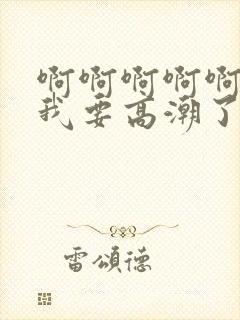 啊啊啊啊啊
我要高潮了
雷頌德